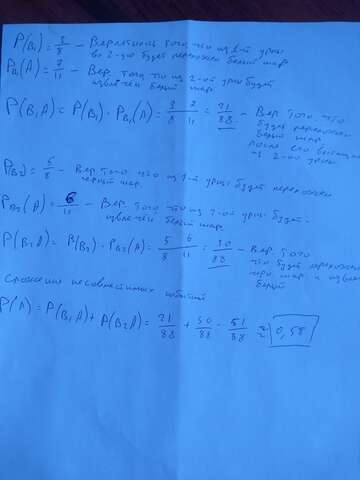 P(B₁) = 3/8 - Вероятность того что из 1-ой урны
во 2-ую будет переложен белый шар
P_B₁(A) = 7/11 - Вер. того что из 2-ой урны будет
извлечён белый шар
P(B₁A) = P(B₁) · P_B₁(A) = 3/8 · 7/11 = 21/88 - Вер. того, что
будет переложен
белый шар
после его
из 2-ой урны
P(B₂) = 5/8 - Вер. того что из 1-ой урны будет переложен
черный шар.
P_B₂(A) = 6/11 - Вер. того что из 2-ой урны будет
извлечён белый шар
P(B₂A) = P(B₂) · P_B₂(A) = 5/8 6/11 = 30/88 - Вер. того
что будет переложен
шар и
белый
Сложение несовместимых событий
P(A) = P(B₁A) + P(B₂A) = 21/88 + 30/88 = 51/88 ≈ 0,58